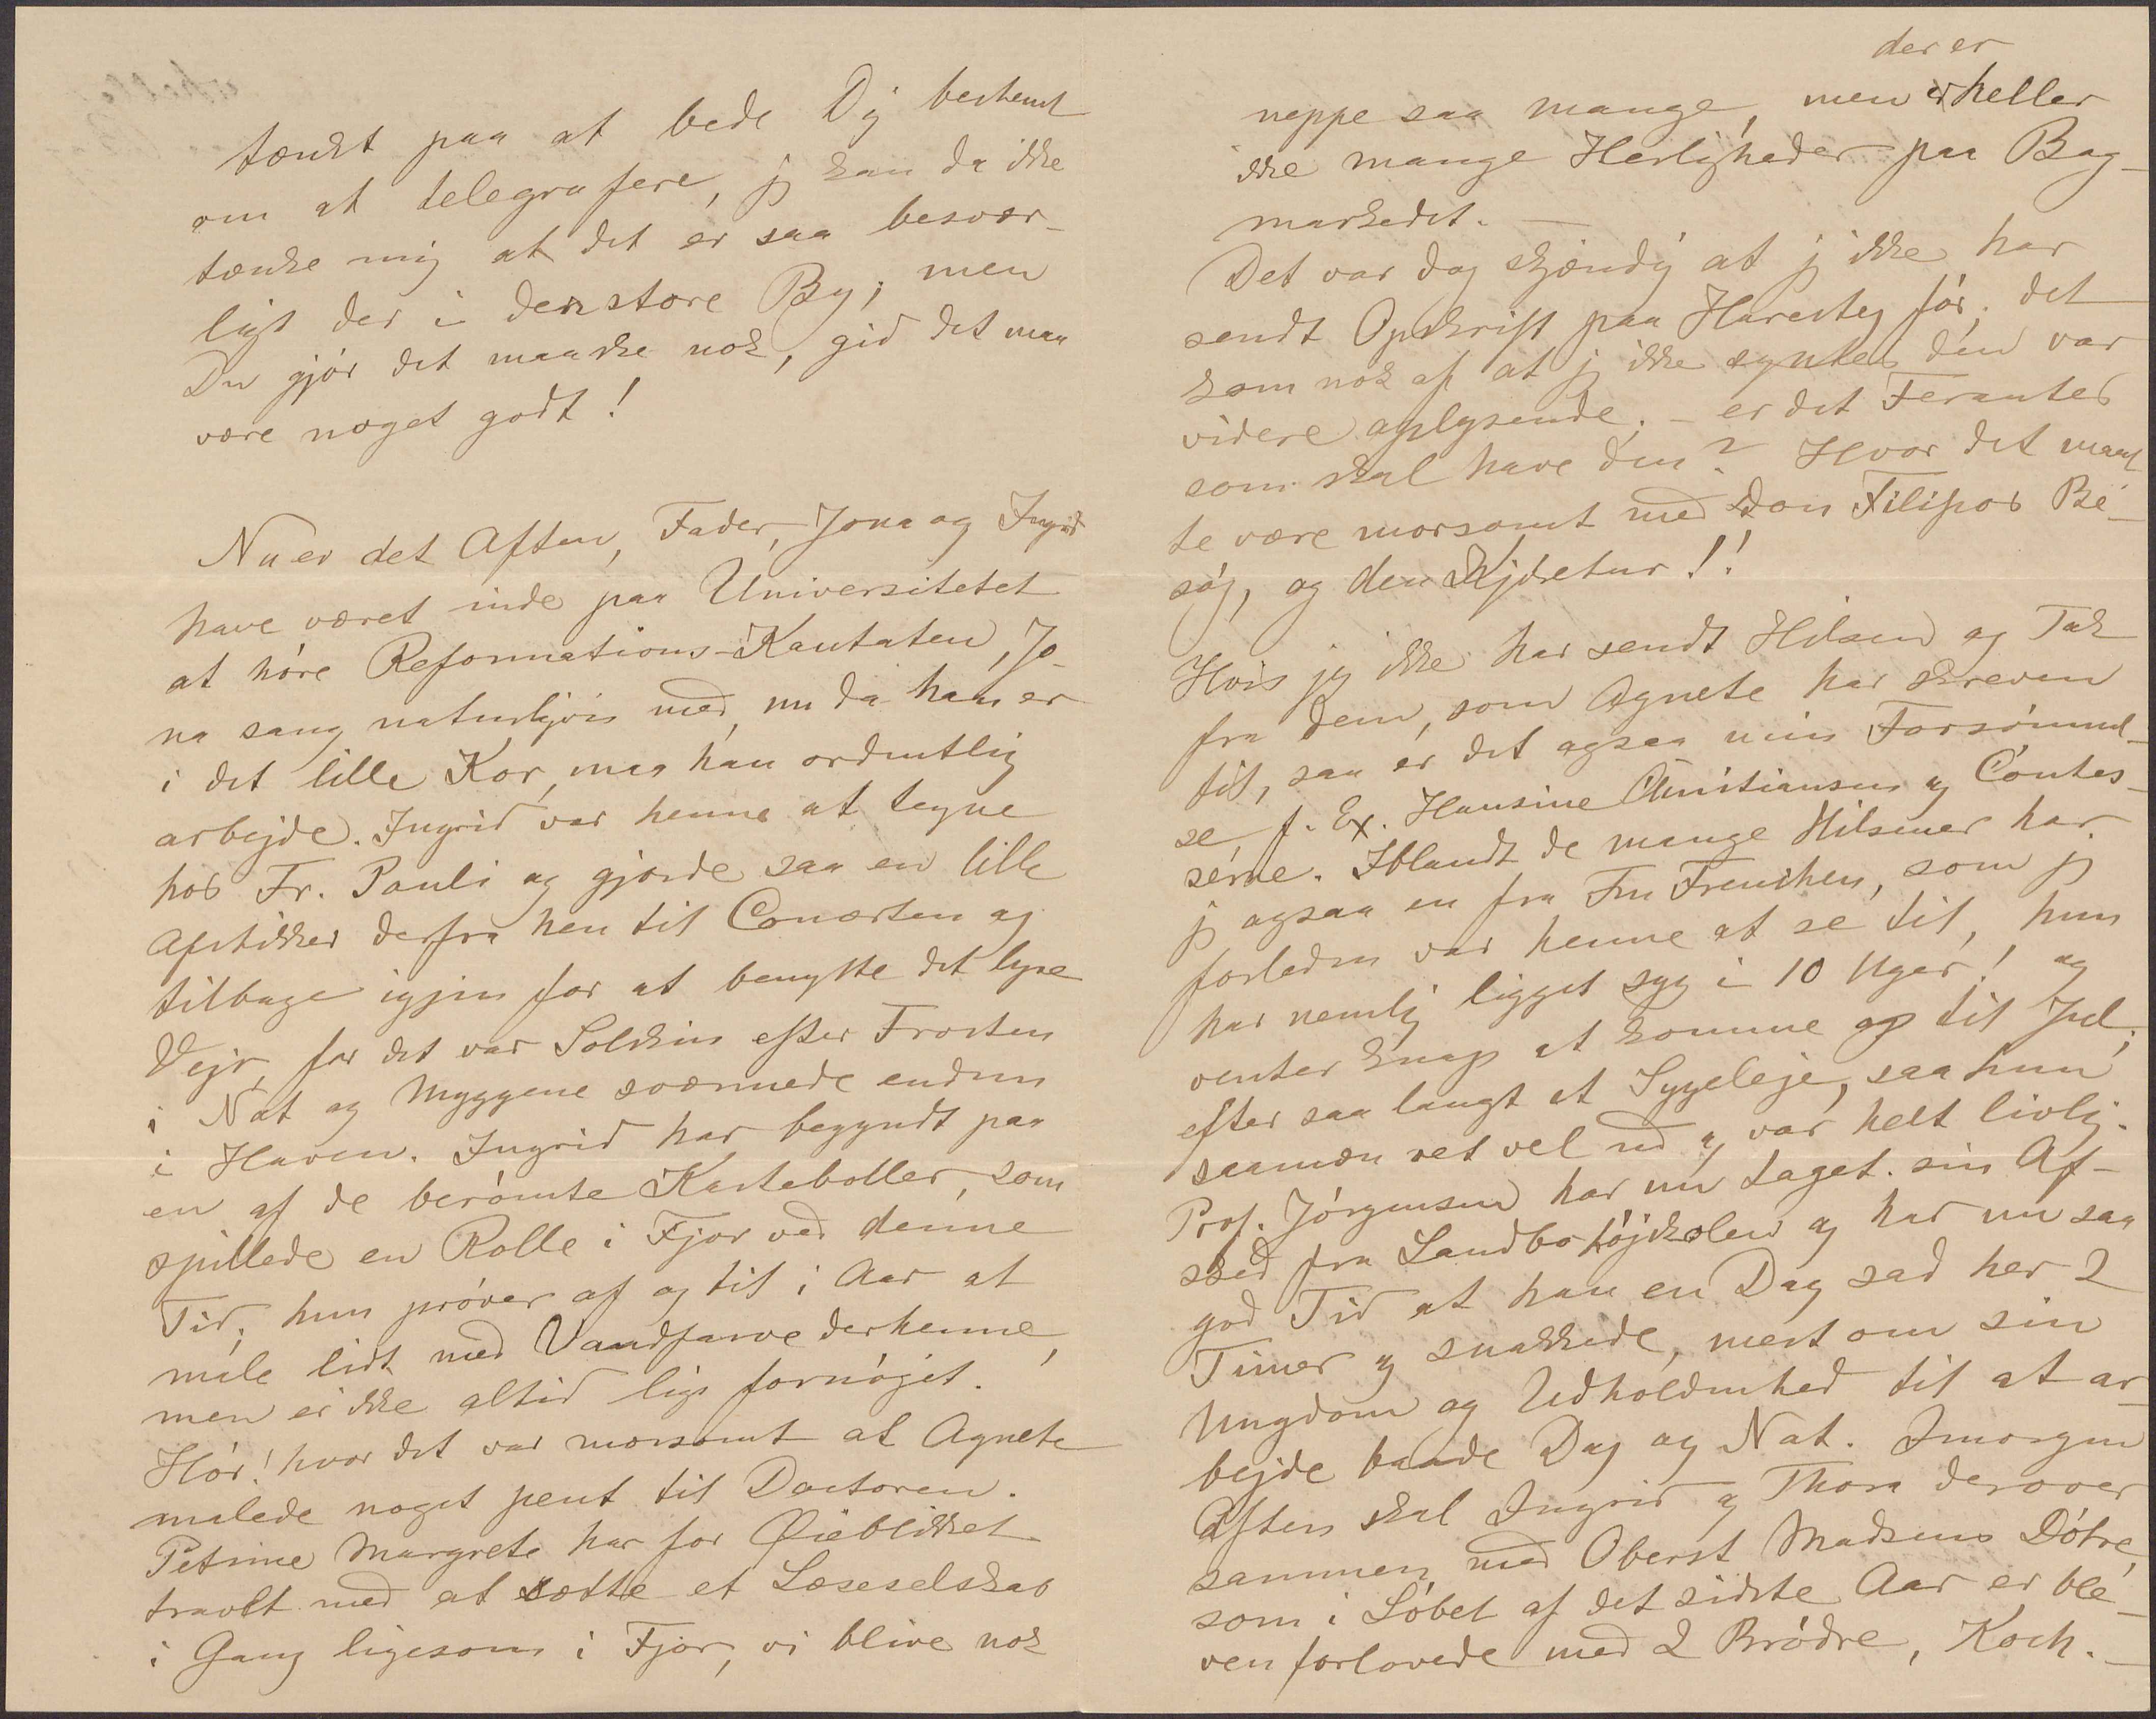 tænkt paa at bede Dig bestemt
om at telegrafere, jeg kan da ikke
tænke mig at det er saa besvær-
ligt der i den store By; men
Du gjør det maaske nok, gid det maa
være noget godt!
Nu er det Aften, Fader, Jona og Ingrid
have været inde paa Universitetet
at høre Reformations-Kantaten, Jo-
na sang naturligvis med, nu da han er
i det lille Kor, maa han ordentlig
arbejde. Ingrid var henne at tegne
hos Fr. Pauli og gjorde saa en lille
Afstikker derfra hen til Concerten og
tilbage igjen for at benytte det lyse
Vejr, for det var Solskin efter Frosten
i Nat og Myggene sværmede endnu
i Haven. Ingrid har begyndt paa
en af de berømte Karteboller, som
spillede en Rolle i Fjor ved denne
Tid; hun prøver af og til i Aar at
male lidt med Vandfarve derhenne,
men er ikke altid lige fornøjet.
Hør! hvor det var morsomt at Agnete
malede noget pent til Doctoren.
Petrine Margrete har for Øieblikket
travlt med at sætte et Læseselskab
i Gang ligesom i Fjor, vi blive nok
der er
neppe saa mange, men heller
ikke mange Herligheder paa Bog-
markedet. —
Det var dog skjændig at jeg ikke har
sendt Opskrift paa Haresteg før; det
kom nok af at jeg ikke syntes den var
videre oplysende. – er det Ferantes
som skal have den? Hvor det maat-
te være morsomt med Don Filipos Be-
søg, og den Kjøretur!!
Hvis jeg ikke har sendt Hilsen og Tak
fra dem, som Agnete har skreven
til, saa er det ogsaa min Forsømmel-
se, f. Ex. Hansine Christiansen og Contes-
serne. Iblandt de mange Hilsener har
jeg ogsaa en fra Fru Frenchen, som jeg
forleden var henne at se til, hun
har nemlig ligget syg i 10 Uger! og
venter knap at komme op til Jul;
efter saa langt et Sygeleje, saa hun
saamæn ret vel ud og var helt livlig.
Prof. Jørgensen har nu taget sin Af-
sked fra Landbohøjskolen og har nu saa
god Tid at han en Dag sad her 2
Timer og snakkede, mest om sin
Ungdom og Udholdenhed til at ar-
bejde baade Dag og Nat. Imorgen
Aften skal Ingrid og Thora derover
sammen med Oberst Madsens Døtre,
som i Løbet af det sidste Aar er ble-
ven forlovede med 2 Brødre, Koch. —